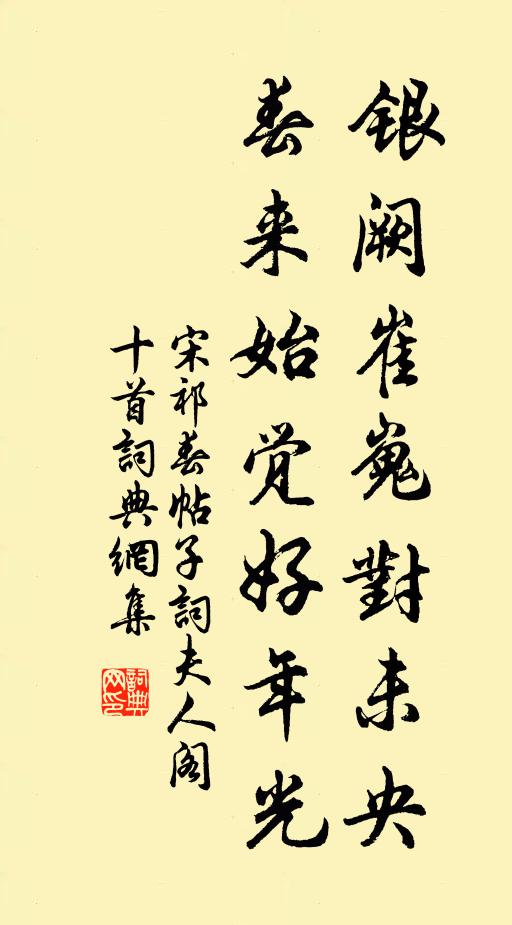 银阙崔嵬對未央
春来始觉好年光
宋祁春帖子詞夫人阁
十首詞典網集
詞典网印